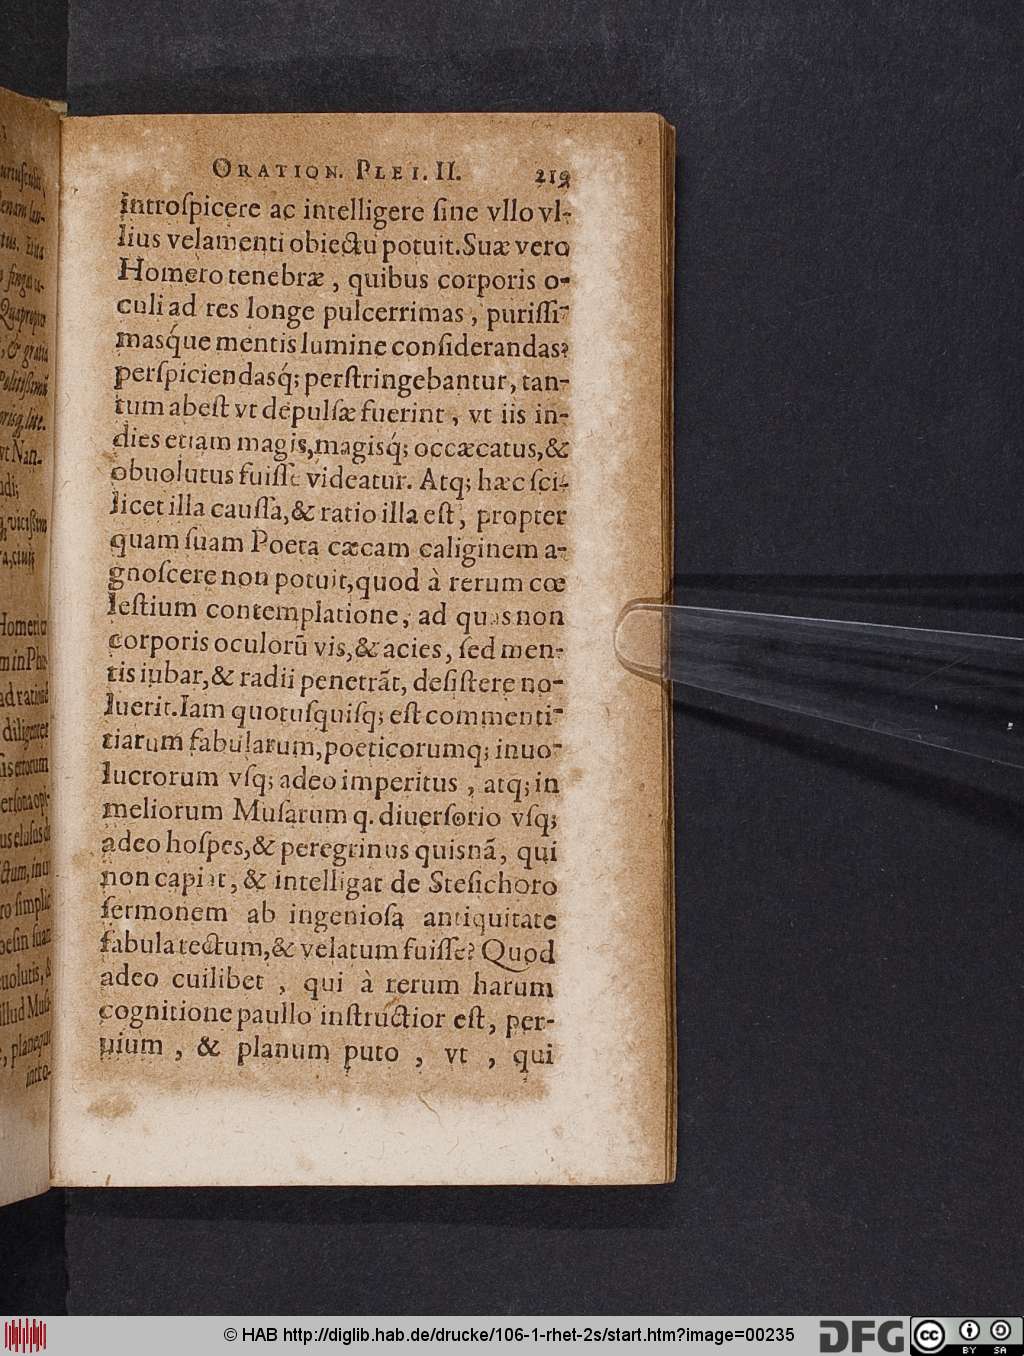 ORATION. PLEI. II. 219
introſpicere ac intelligere ſine vllo vl-
lius velamenti obiectu potuit. Suæ vero
Homero tenebræ, quibus corporis o-
culi ad res longe pulcerrimas, puriſſi-
masq́ue mentis lumine conſiderandas?
perſpiciendasq́; perſtringebantur, tan-
tum abeſt vt depulſæ fuerint, vt iis in-
dies etiam magis, magisq́; occæcatus, &
obuolutus fuiſſe videatur. Atq; hæc ſci-
licet illa cauſſa, & ratio illa eſt, propter
quam ſuam Poeta cæcam caliginem a-
gnoſcere non potuit, quod à rerum cœ
leſtium contemplatione, ad quas non
corporis oculorū vis, & acies, ſed men-
tis iubar, & radii penetrāt, deſiſtere no-
luerit. Iam quotuſquiſq; eſt commenti-
tiarum fabularum, poeticorumq; inuo-
lucrorum vſq; adeo imperitus, atq; in
meliorum Muſarum q. diuerſorio vſq;
adeo hoſpes, & peregrinus quisnā, qui
non capiat, & intelligat de Steſichoro
ſermonem ab ingenioſa antiquitate
fabula tectum, & velatum fuiſſe? Quod
adeo cuilibet, qui à rerum harum
cognitione paullo inſtructior eſt, per-
uium, & planum puto, vt, qui
© HAB http://diglib.hab.de/drucke/106-1-rhet-2s/start.htm?image=00235
DFG cc BY SA